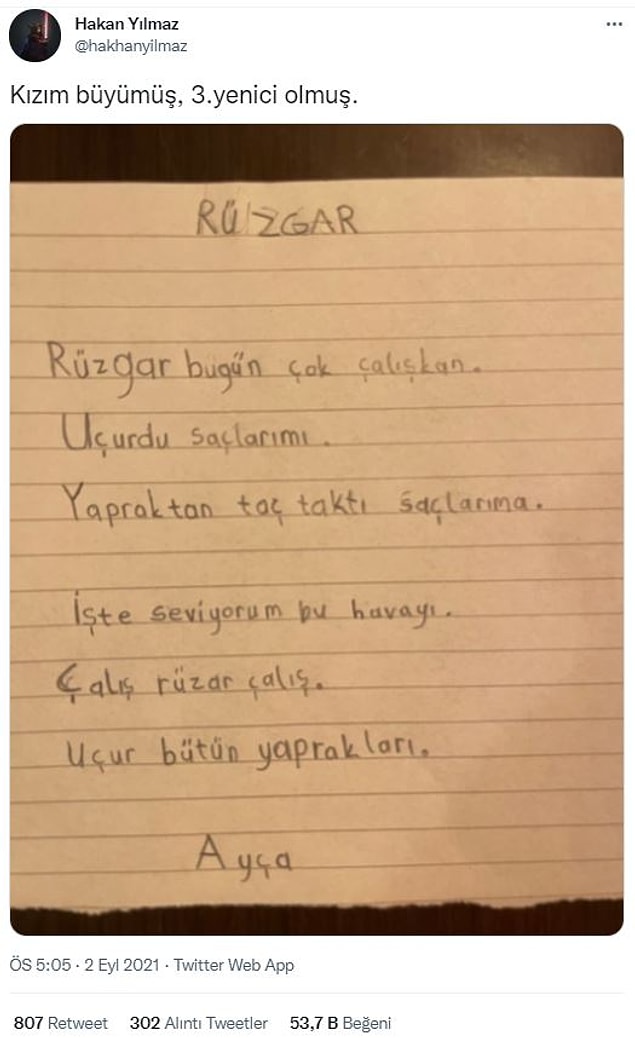 Hakan Yılmaz
@hakhanyilmaz
Kızım büyümüş, 3.yenici olmuş.
RÜZGAR
Rüzgar bugün çok çalışkan.
Uçurdu saçlarımı.
Yapraktan taç taktı saçlarıma.
İşte seviyorum bu havayı.
Çalış rüzar çalış.
Uçur bütün yaprakları.
Ayça
ÖS 5:05 · 2 Eyl 2021 · Twitter Web App
807 Retweet 302 Alıntı Tweetler 53,7 B Beğeni